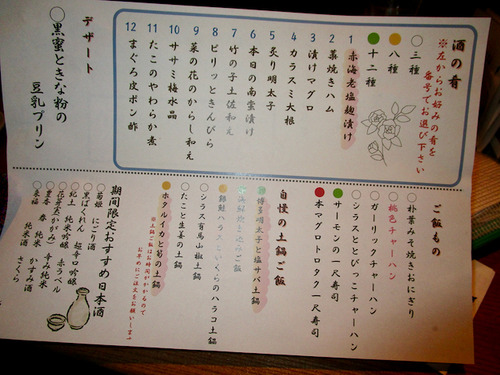 酒の肴
※左からお好みの肴を
番号でお選び下さい
〇三種
八種
十二種
1 赤海老塩麹漬け
2 藁焼きハム
3 漬けマグロ
4 カラスミ大根
5 炙り明太子
6 本日の南蛮漬け
7 竹の子土佐和え
8 ピリッときんぴら
9 菜の花のからし和え
10 ササミ梅水晶
11 たこのやわらか煮
12 まぐろ皮ポン酢
デザート
〇黒蜜ときな粉の
豆乳プリン
ご飯もの
朴葉みそ焼きおにぎり
桃色チャーハン
ガーリックチャーハン
シラスととびっこチャーハン
サーモンの一尺寿司
本マグロトロタク一尺寿司
自慢の土鍋ご飯
博多明太子と塩サバ土鍋
銀鮭ハラスといくらのハラコ土鍋
シラス有馬山椒土鍋
たこと生姜の土鍋
ホタルイカと筍の土鍋
※土鍋ご飯はお時間がかかるので
お早めにご注文をお願いします
期間限定おすすめ日本酒
〇菊姫 にごり酒
〇黒ばくれん 超辛口吟醸
純米吟醸 赤ラベル
辛み純米
春 純米 かすみ酒
純米酒 さくら